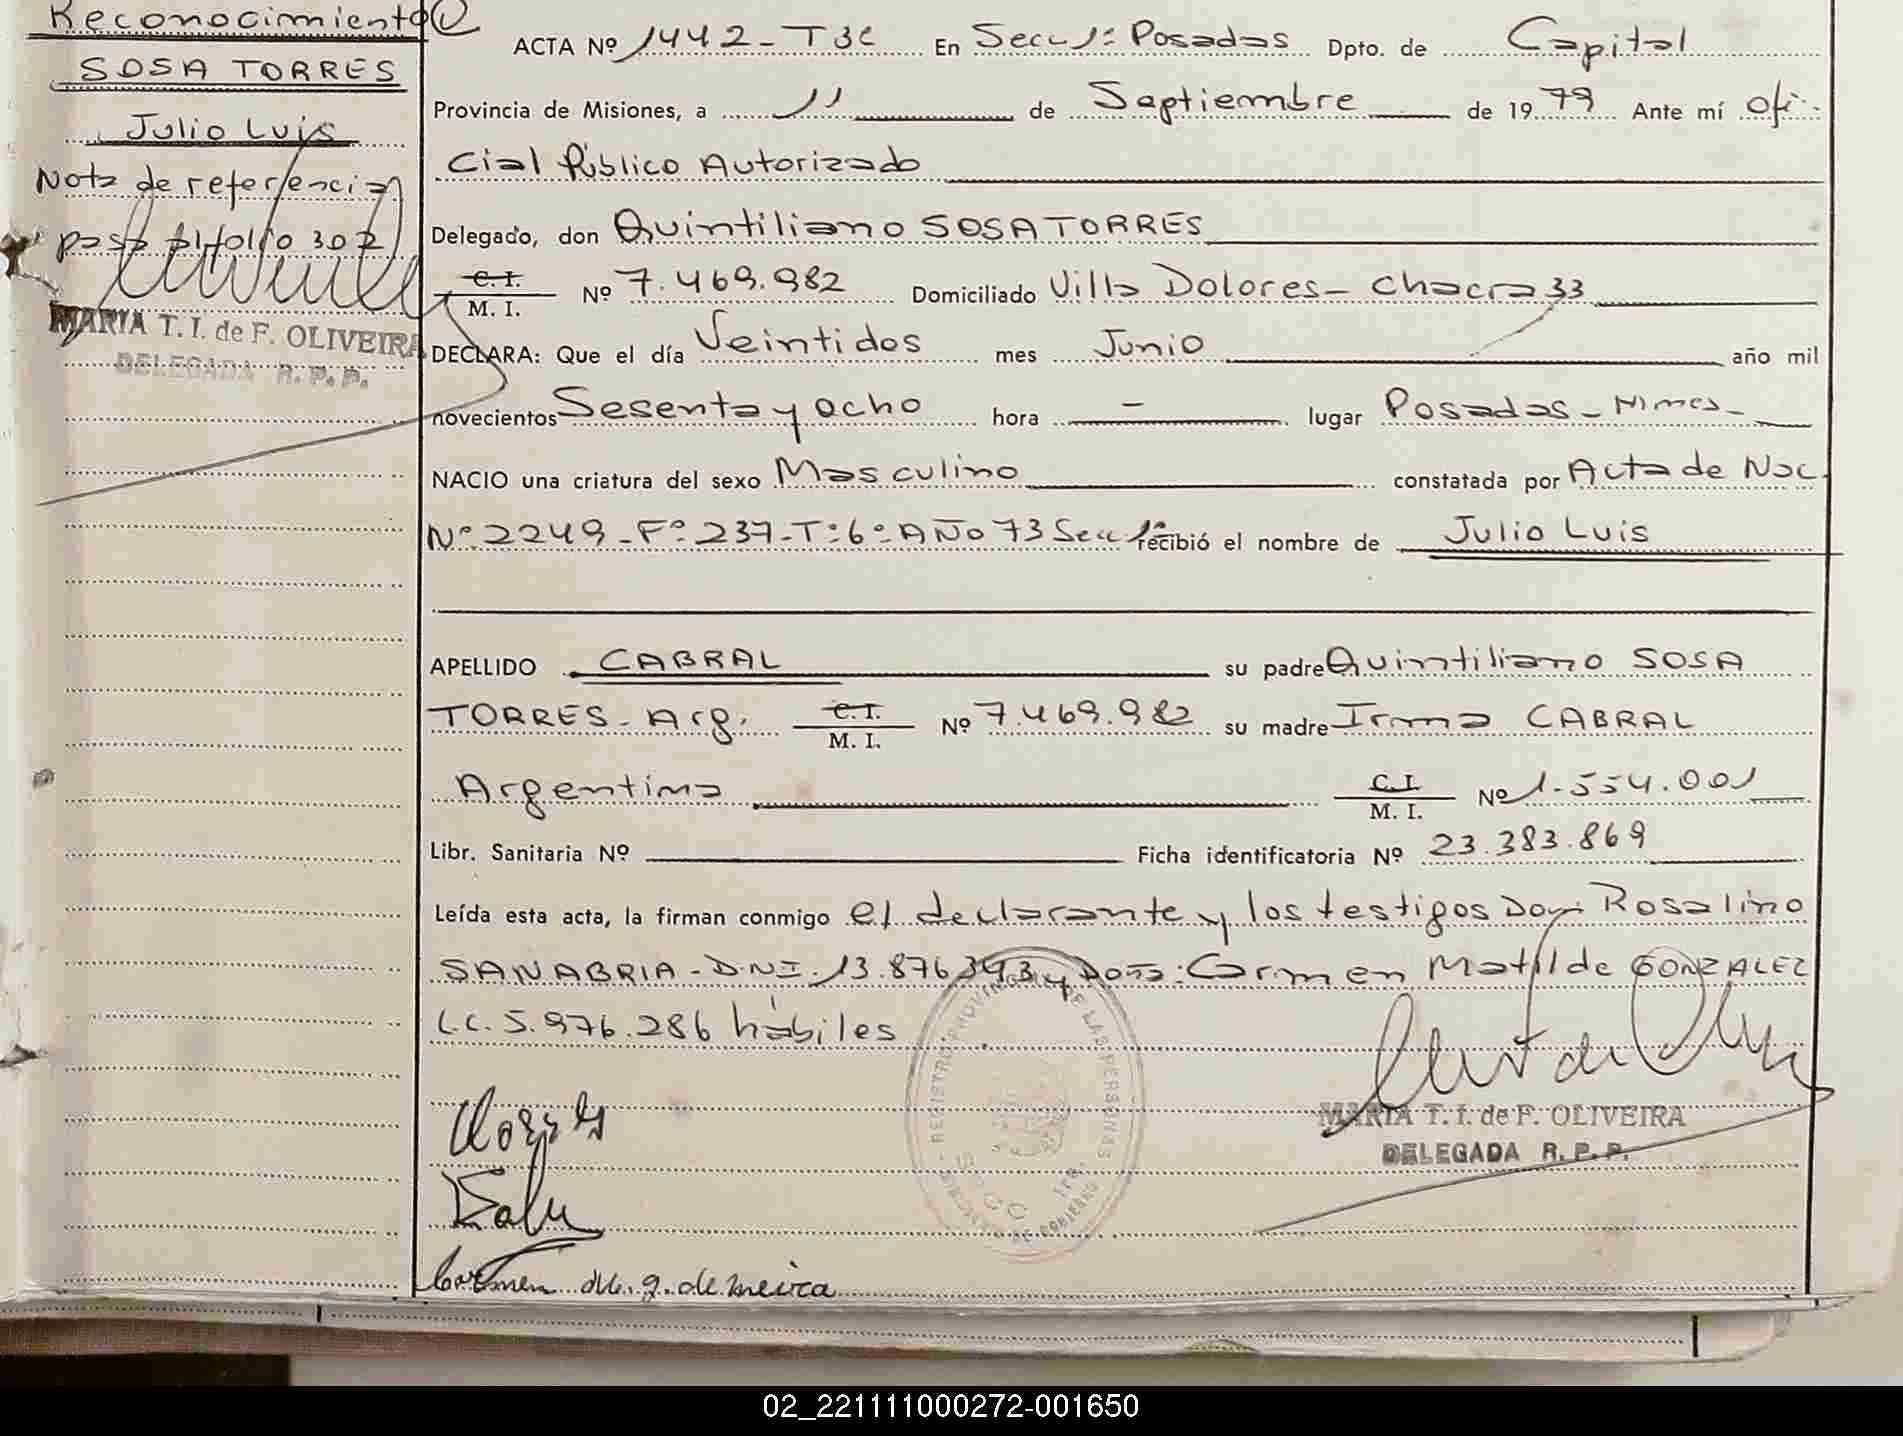 Reconocimiento
SOSA TORRES
Julio Luis
Nota de referencia
pasa al folio 302
MARIA T. I. de F. OLIVEIRA
DELEGADA R. P. P.
ACTA Nº 1442-T3º En Secc 1ª Posadas Dpto. de Capital
Provincia de Misiones, a 11 de Septiembre de 1979 Ante mí Ofi-
cial Público Autorizado
Delegado, don Quintiliano SOSA TORRES
C. I. / M. I. Nº 7.469.982 Domiciliado Villa Dolores - Chacra 33
DECLARA: Que el día Veintidos mes Junio año mil
novecientos Sesenta y ocho hora - lugar Posadas - Mnes -
NACIO una criatura del sexo Masculino constatada por Acta de Nac.
Nº 2249-Fº 237-Tº 6º AÑO 73 Secc 1ª recibió el nombre de Julio Luis
APELLIDO CABRAL su padre Quintiliano SOSA
TORRES - Arg. C. I. / M. I. Nº 7.469.982 su madre Irma CABRAL
Argentina C. I. / M. I. Nº 1.554.001
Libr. Sanitaria Nº Ficha identificatoria Nº 23.383.869
Leída esta acta, la firman conmigo el declarante y los testigos Don: Rosalino
SANABRIA - D.N.I. 13.876.393 y Doña: Carmen Matilde GONZALEZ
L.C. 5.976.286 hábiles
REGISTRO PROVINCIAL DE LAS PERSONAS
MARIA T. I. de F. OLIVEIRA
DELEGADA R. P. P.
Carmen M. g. de meira
02_221111000272-001650